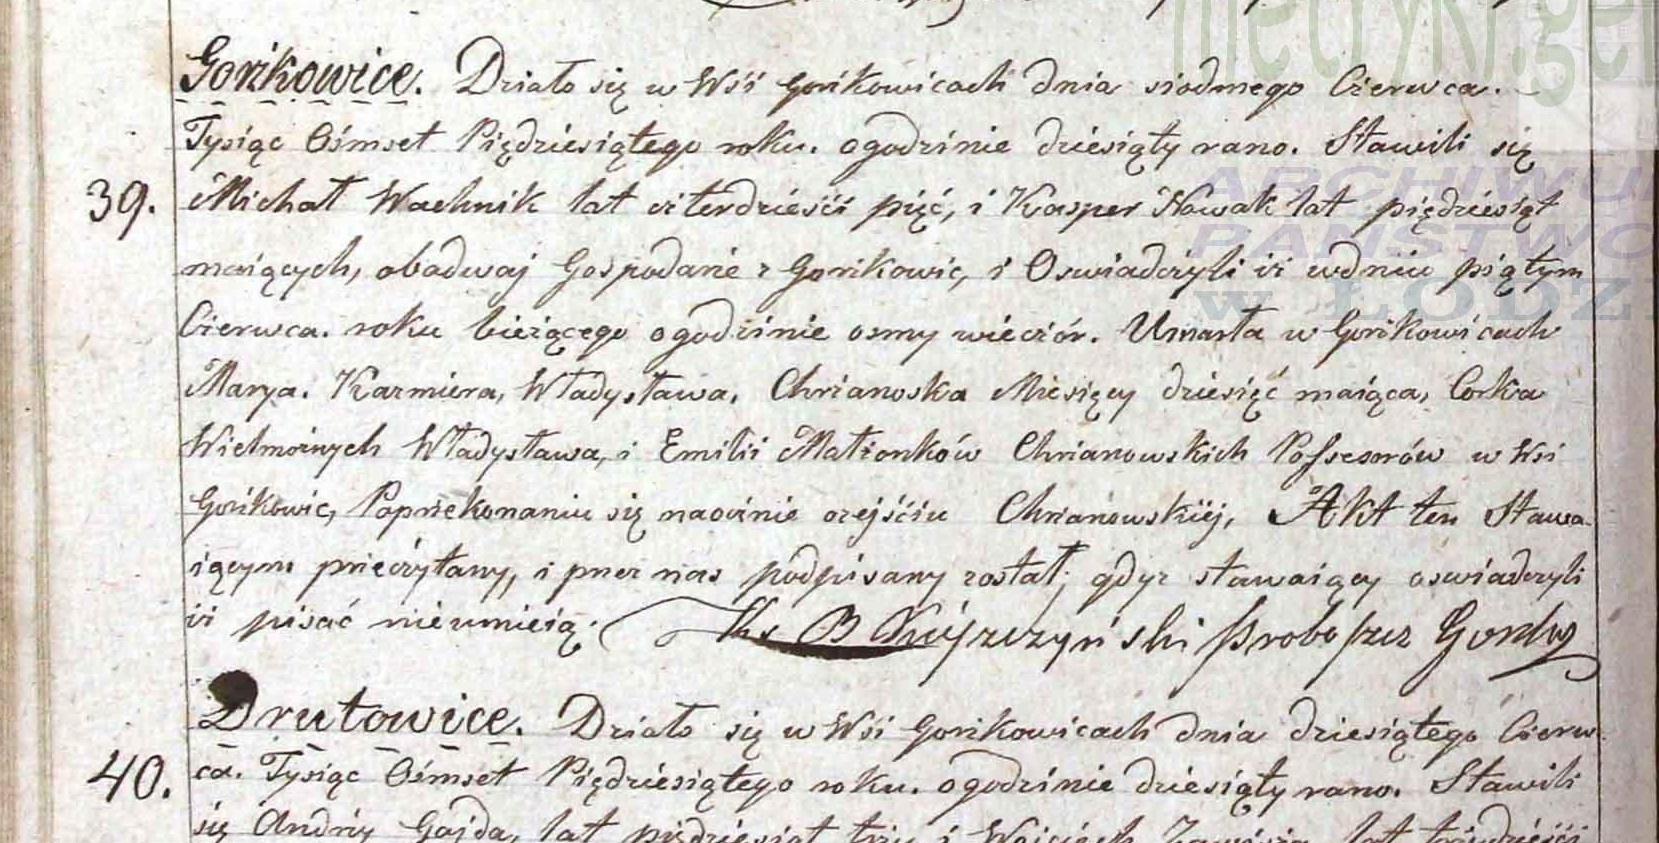 Gorżkowice. Działo się w Wśi Gorżkowicach dnia siodmego Czerwca.
Tysiąc Ośmset Piędziesiątego roku. ogodzinie dziesiąty rano. Stawili się
39. Michał Wachnik lat czterdzieśći pięć, i Kasper Nowak lat piędziesiąt
maiących, obadwaj Gospodarze z Gorżkowic, i Oswiadczyli iż wdniu piątym
Czerwca. roku bieżącego ogodzinie osmy wieczór. Umarła w Gorżkowicach
Marya. Kazmiera, Władysława, Chrzanoska Miesięcy dziesięć maiąca, Corka
Wielmożnych Władysława, i Emilii Małżonków Chrzanowskich Possesorów w Wsi
Gorżkowic, Poprzekonaniu się naocznie ozejśćiu Chrzanowskiéj, Akt ten Stawa-
iącym przeczytany, i przez nas podpisany został; gdyz stawaiący oswiadczyli
iż pisać nieumieią. Ks B proboszcz
Drutowice. Działo się w Wśi Gorżkowicach dnia dziesiątego Czerw-
40. ca. Tysiąc Ośmset Piędziesiątego roku. ogodzinie dziesiąty rano. Stawili
się Andrzy Gajda, lat piędziesiąt trzy i Wojciech lat trzydzieśći
metryki.gen
ARCHIWU
PAŃSTWO
w ŁODZI